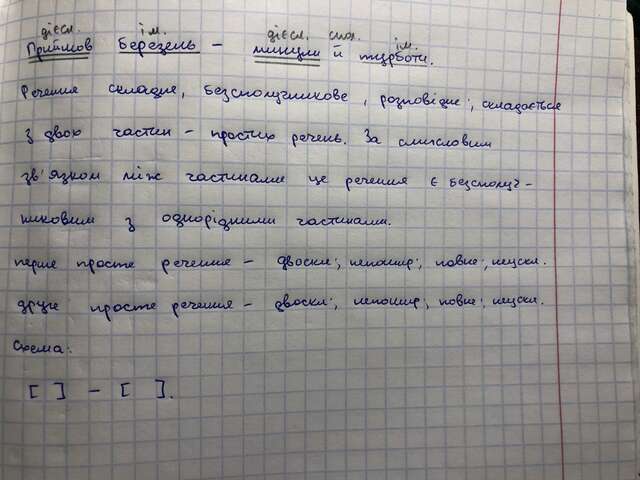 дієсл. ім. дієсл. спол. ім.
Прийшов березель – минули й турботи.
Речення складне, безсполучникове, розповідне, складається
з двох частин – простих речень. За смисловим
зв'язком між частинами це речення є безсполуч-
никовим з однорідними частинами.
перше просте речення – двоскл., непошир., повне, неускл.
друге просте речення – двоскл., непошир., повне, неускл.
Схема:
[ ] – [ ].